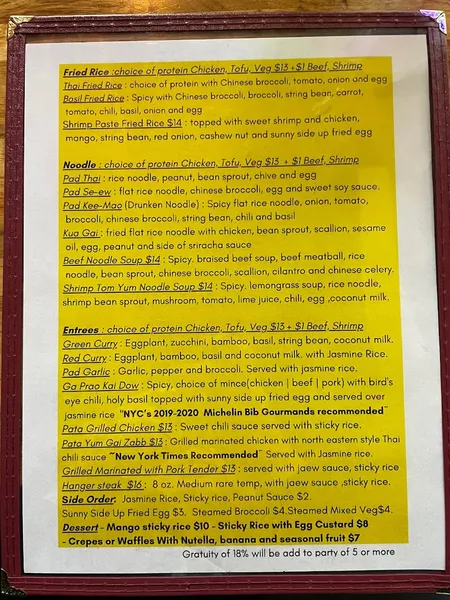 Fried Rice :choice of protein Chicken, Tofu, Veg $13 +$1 Beef, Shrimp
Thai Fried Rice : choice of protein with Chinese broccoli, tomato, onion and egg
Basil Fried Rice : Spicy with Chinese broccoli, broccoli, string bean, carrot,
tomato, chili, basil, onion and egg
Shrimp Paste Fried Rice $14 : topped with sweet shrimp and chicken,
mango, string bean, red onion, cashew nut and sunny side up fried egg
Noodle : choice of protein Chicken, Tofu, Veg $13 + $1 Beef, Shrimp
Pad Thai : rice noodle, peanut, bean sprout, chive and egg
Pad Se-ew : flat rice noodle, chinese broccoli, egg and sweet soy sauce.
Pad Kee-Mao (Drunken Noodle) : Spicy flat rice noodle, onion, tomato,
broccoli, chinese broccoli, string bean, chili and basil
Kua Gai : fried flat rice noodle with chicken, bean sprout, scallion, sesame
oil, egg, peanut and side of sriracha sauce
Beef Noodle Soup $14 : Spicy. braised beef soup, beef meatball, rice
noodle, bean sprout, chinese broccoli, scallion, cilantro and chinese celery.
Shrimp Tom Yum Noodle Soup $14 : Spicy. lemongrass soup, rice noodle,
shrimp bean sprout, mushroom, tomato, lime juice, chili, egg ,coconut milk.
Entrees : choice of protein Chicken, Tofu, Veg $13 + $1 Beef, Shrimp
Green Curry : Eggplant, zucchini, bamboo, basil, string bean, coconut milk.
Red Curry : Eggplant, bamboo, basil and coconut milk. with Jasmine Rice.
Pad Garlic : Garlic, pepper and broccoli. Served with jasmine rice.
Ga Prao Kai Dow : Spicy, choice of mince(chicken | beef | pork) with bird's
eye chili, holy basil topped with sunny side up fried egg and served over
jasmine rice "NYC's 2019-2020 Michelin Bib Gourmands recommended"
Pata Grilled Chicken $13 : Sweet chili sauce served with sticky rice.
Pata Yum Gai Zabb $13 : Grilled marinated chicken with north eastern style Thai
chili sauce ~New York Times Recommended~ Served with Jasmine rice.
Grilled Marinated with Pork Tender $13 : served with jaew sauce, sticky rice
Hanger steak $16 : 8 oz. Medium rare temp, with jaew sauce ,sticky rice.
Side Order: Jasmine Rice, Sticky rice, Peanut Sauce $2.
Sunny Side Up Fried Egg $3. Steamed Broccoli $4.Steamed Mixed Veg$4.
Dessert - Mango sticky rice $10 - Sticky Rice with Egg Custard $8
- Crepes or Waffles With Nutella, banana and seasonal fruit $7
Gratuity of 18% will be add to party of 5 or more